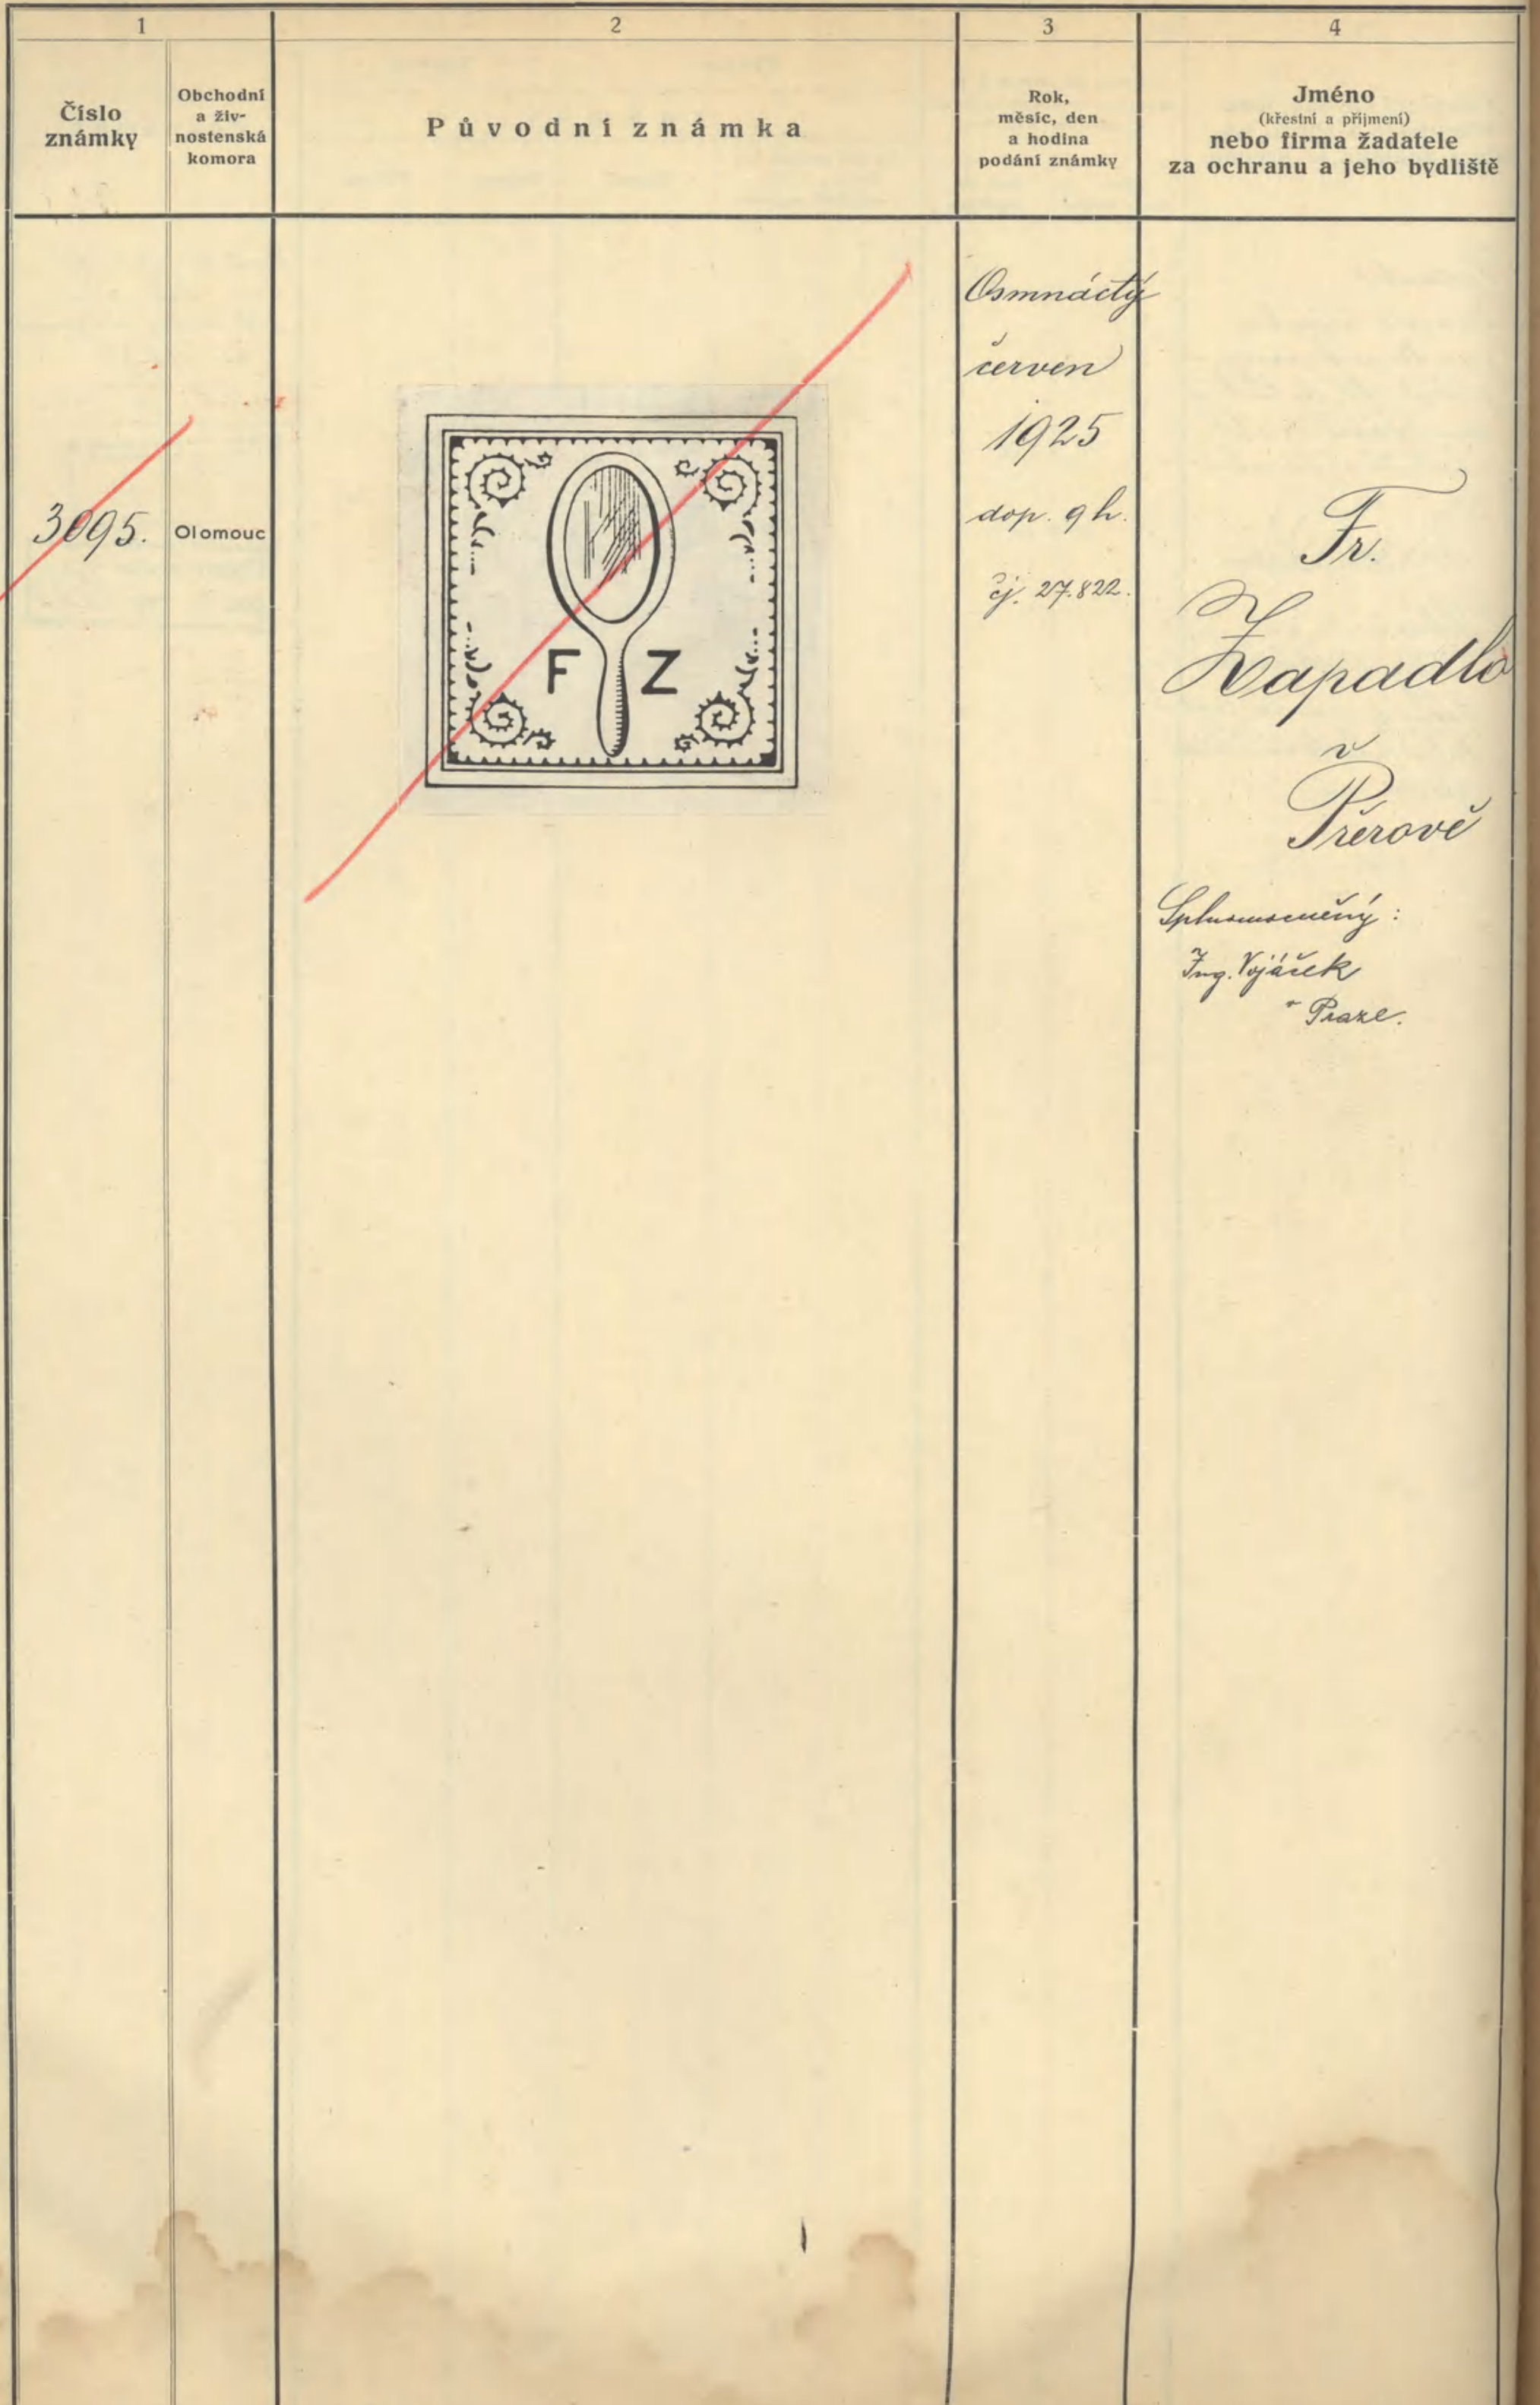 1
2
3
4
Číslo
známky
Obchodní
a živ-
nostenská
komora
Původní známka
Rok,
měsíc, den
a hodina
podání známky
Jméno
(křestní a příjmení)
nebo firma žadatele
za ochranu a jeho bydliště
3095.
Olomouc
F Z
Osmnáctý
červen
1925
dop. 9 h.
čj. 27.822.
Fr.
Zapadlo
v
Přerově
Splnomocněný:
Ing. Vojáček
v Praze.